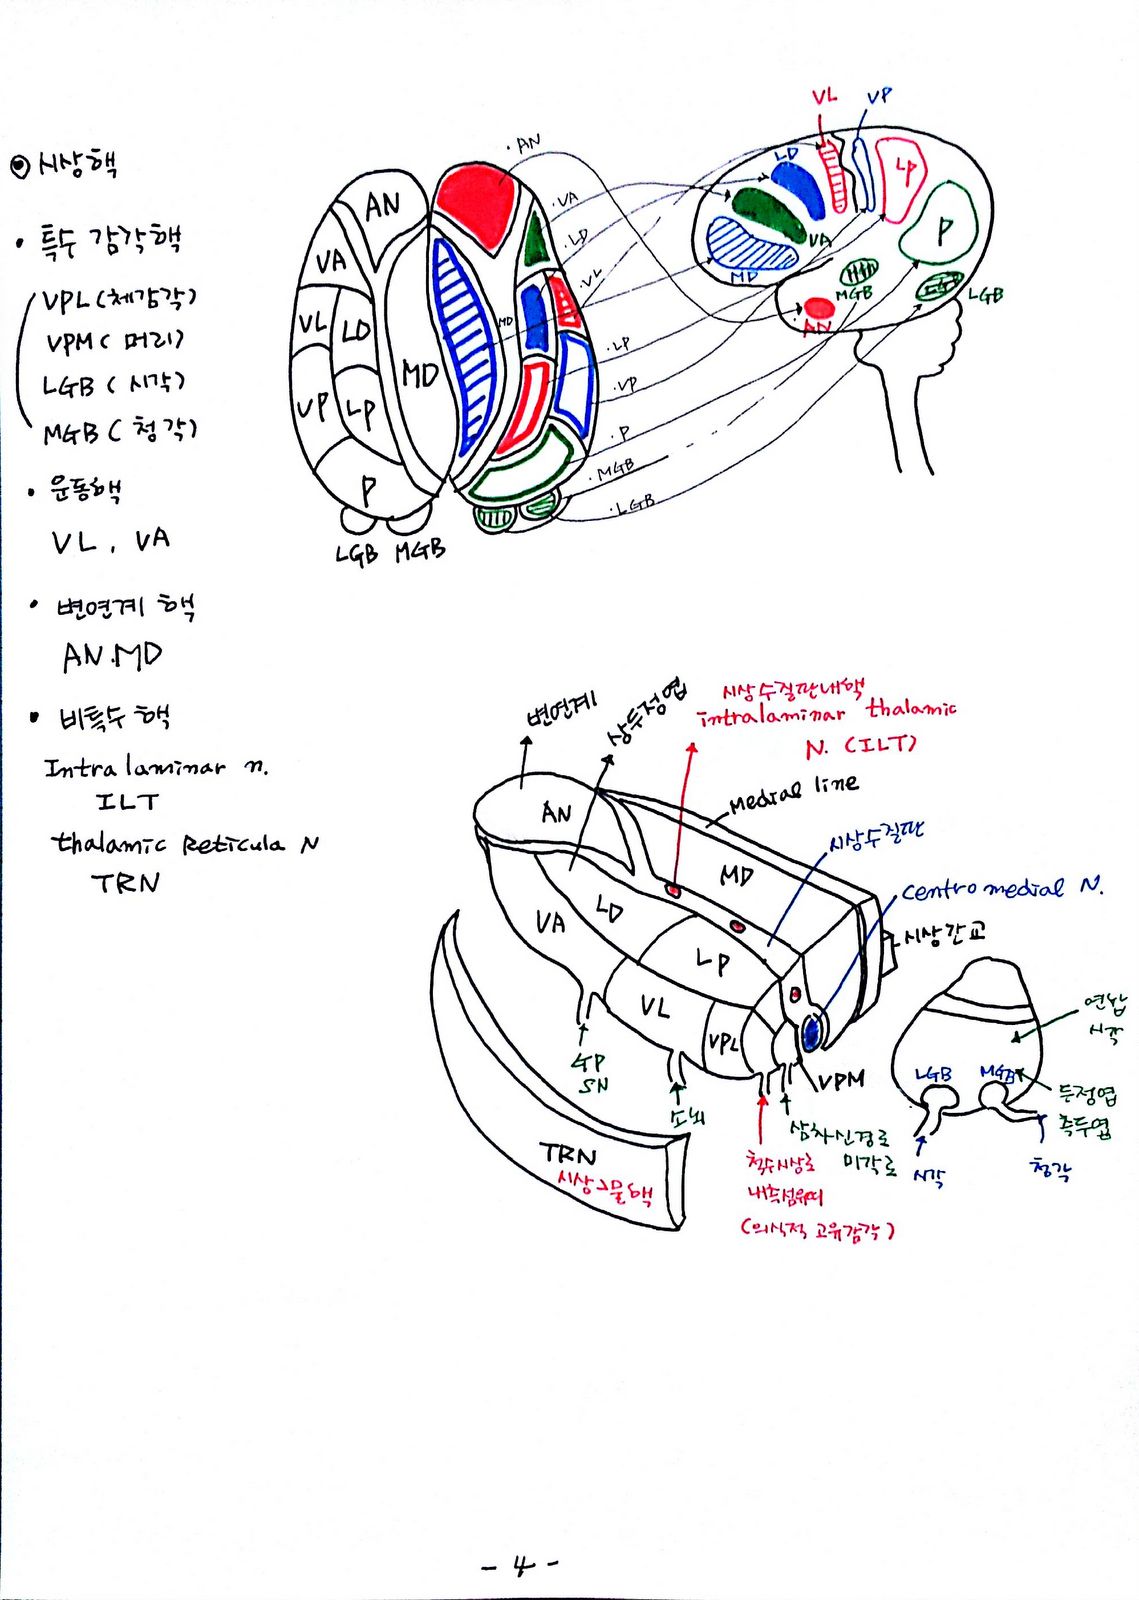 ◉ 시상핵
· 특수 감각핵
VPL (체감각)
VPM ( 머리)
LGB ( 시각)
MGB ( 청각)
· 운동핵
VL , VA
· 변연계 핵
AN.MD
· 비특수 핵
Intralaminar n.
ILT
thalamic Reticula N
TRN
AN
VA
VL
LD
MD
VP
LP
P
LGB MGB
MD
· AN
· VA
· LD
· VL
· LP
· VP
· P
· MGB
· LGB
VL
VP
LD
LP
VA
P
MD
MGB
LGB
LGB
AN
변연계
상두정엽
시상수질판내핵
intralaminar thalamic
N. (ILT)
Medial line
시상수질판
centromedial N.
시상간교
AN
MD
VA
LD
LP
VL
VPL
VPM
GP
SN
소뇌
삼차신경로
미각로
척수시상로
내측섬유띠
(의식적 고유감각)
TRN
시상그물핵
연합
시각
LGB
MGB
두정엽
측두엽
시각
청각
- 4 -